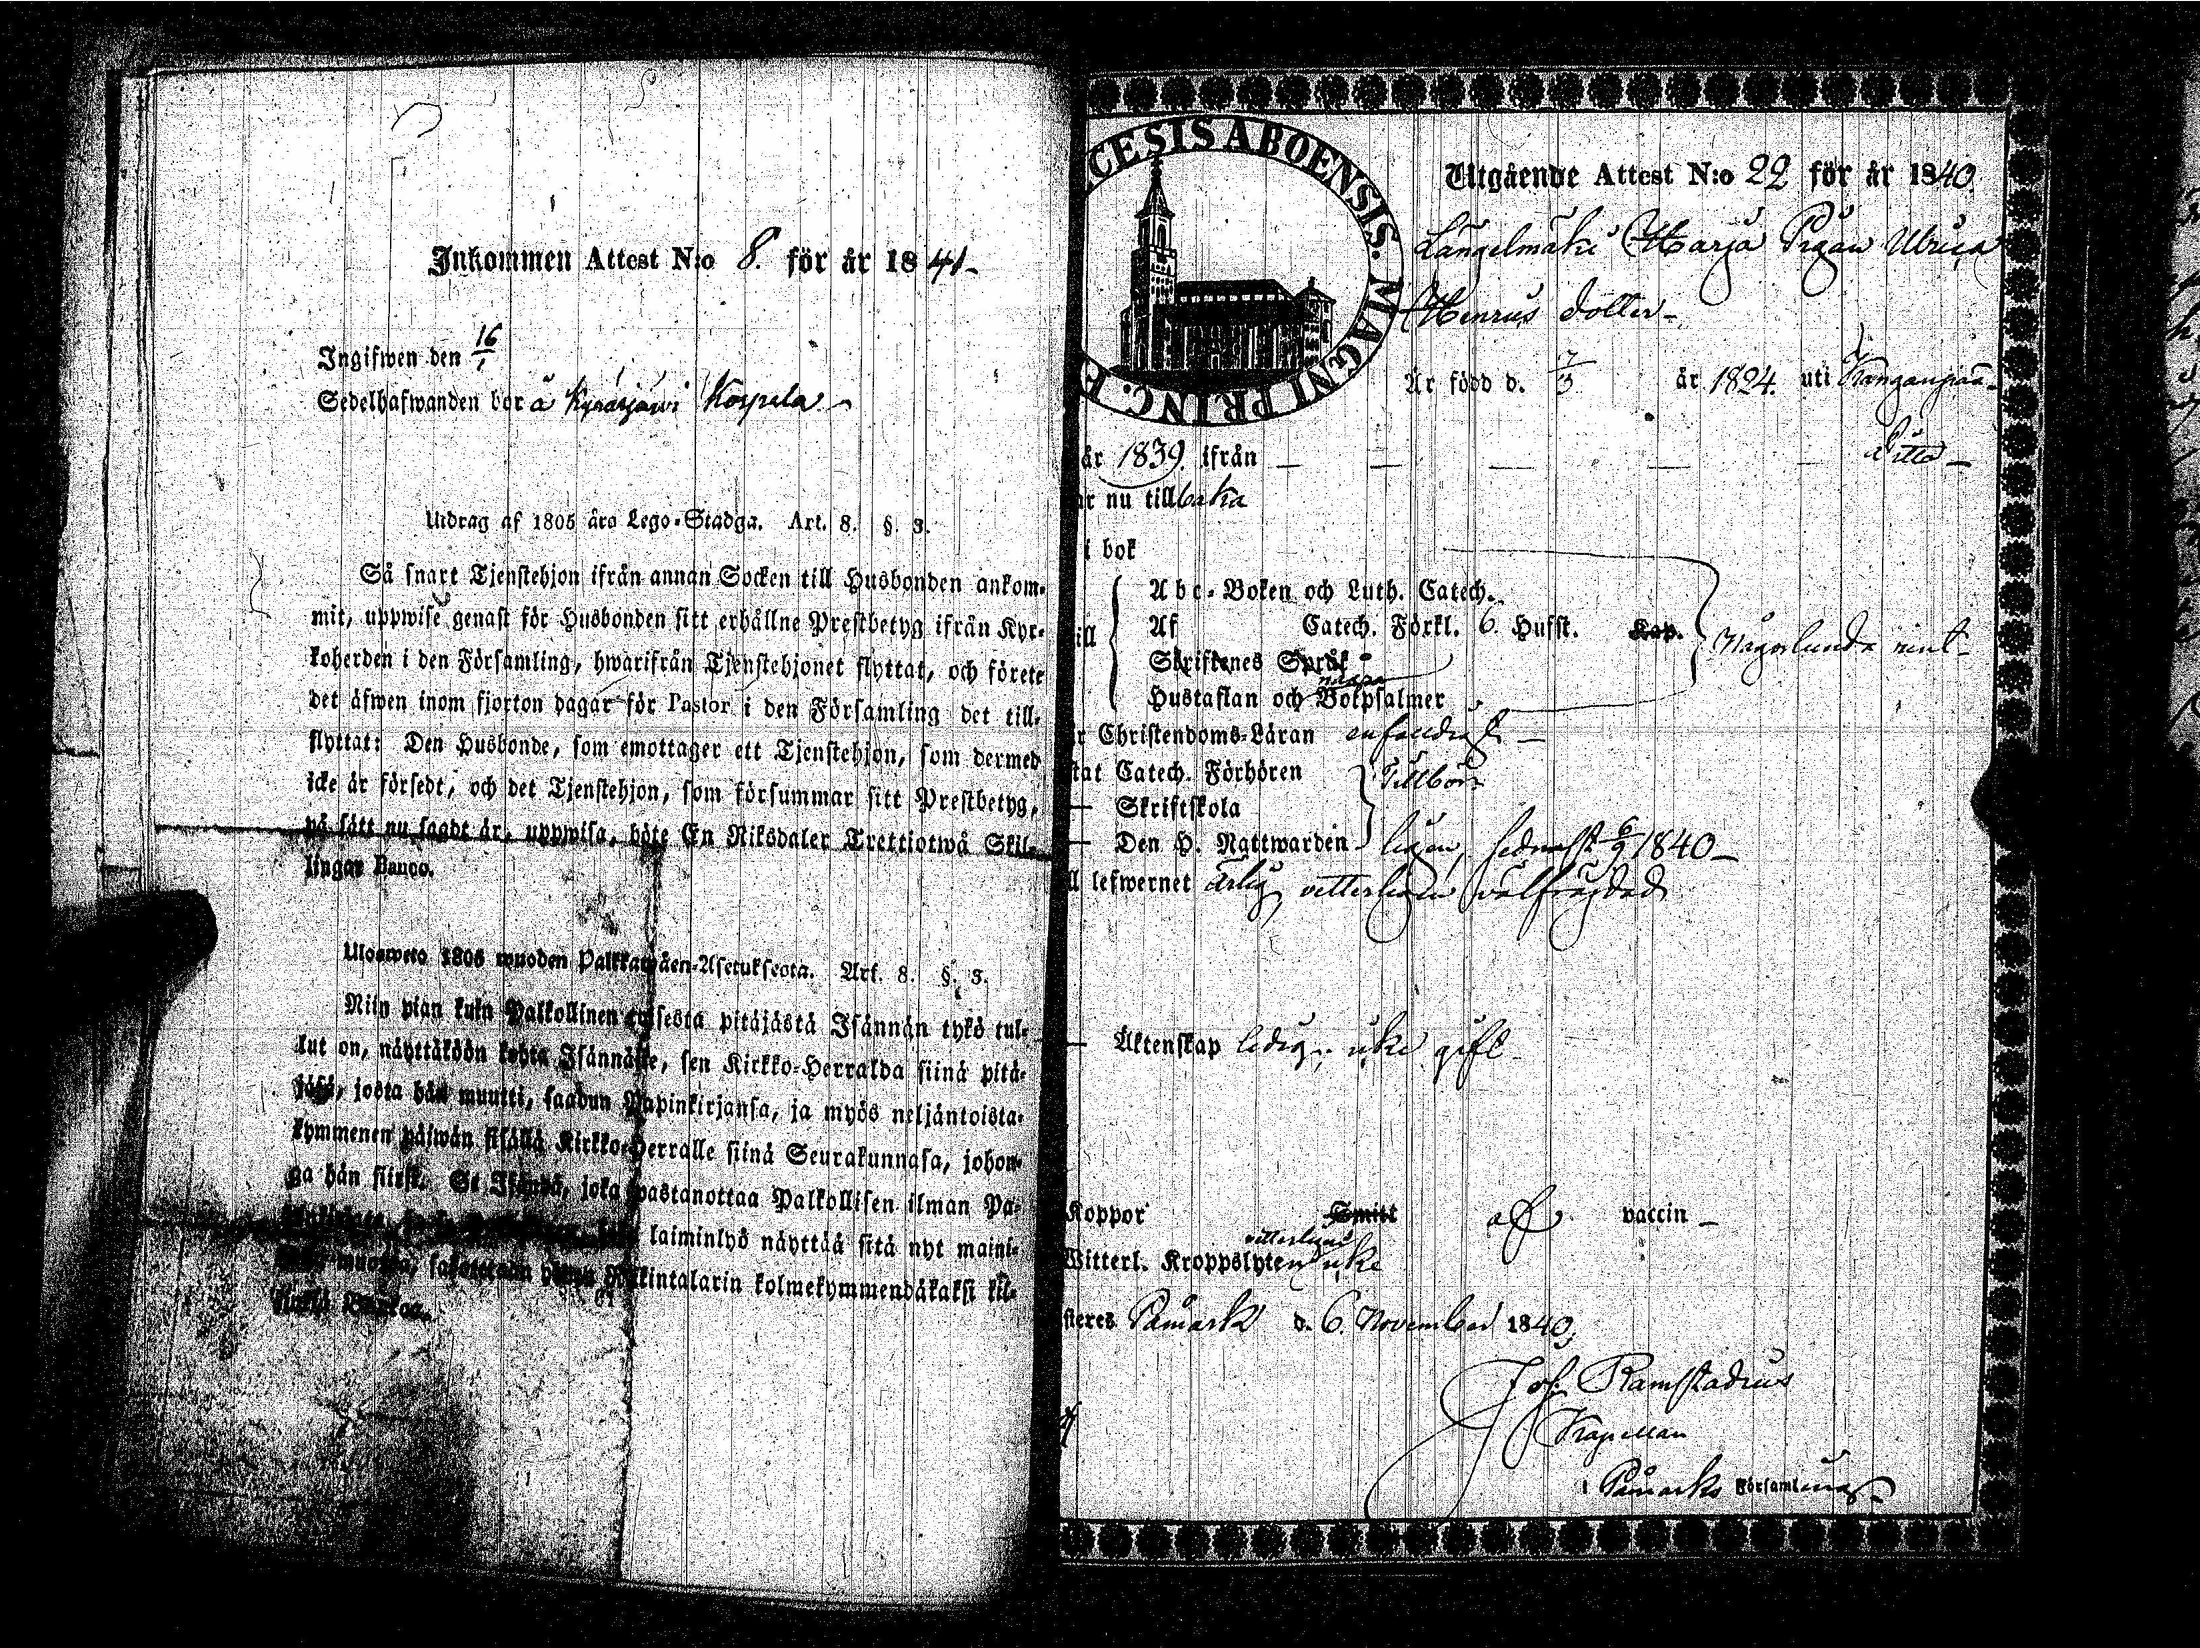 Inkommen Attest N:o 8. för år 1841
Ingifwen den 16/1
Sedelhafwanden bor å Kyräsjärwi Korpela
Utdrag af 1805 års Lego-Stadga. Art. 8. §. 3.
Så snart Tjenstehjon ifrån annan Socken till Husbonden ankom-
mit, uppwise genast för Husbonden sitt erhållne Prestbetyg ifrån Kyr-
koherden i den Församling, hwarifrån Tjenstehjonet flyttat, och förete
det äfwen inom fjorton dagar för Pastor i den Församling det till-
flyttat: Den Husbonde, som emottager ett Tjenstehjon, som dermed
icke är försedt, och det Tjenstehjon, som försummar sitt Prestbetyg,
på sätt nu sagdt är, uppwisa, böte En Riksdaler Trettiotwå Skil-
lingar Banco.
Ulosweto 1805 wuoden Palkkawäen-Asetuksesta. Art. 8. §. 3.
Niin pian kuin Palkollinen toisesta pitäjästä Isännän tykö tul-
lut on, näyttäköön kohta Isännälle, sen Kirkko-Herralda siinä pitä-
jäsä, josta hän muutti, saadun Papinkirjansa, ja myös neljäntoista-
kymmenen päiwän sisällä Kirkko-Herralle siinä Seurakunnasa, johon-
ga hän siirsi. Se Isändä, joka wastanottaa Palkollisen ilman Pa-
laiminlyö näyttää sitä nyt maini-
kolmekymmendäkaksi kil-
CESIS ABOENSIS. MAGNI PRINC. F
Utgående Attest N:o 22 för år 1840
Längelmäki Marja Pigan Ulrica
Henrics dotter
Är född d. 7/3 år 1824. uti Kanganpää
Ditto
år 1839. ifrån
ar nu tillbaka
i bok
Abc-Boken och Luth. Catech.
ill Af Catech. Förkl. 6. Hufst. Kap.
Skriftenes Språk
Hustaflan och Botpsalmer
r Christendoms-Läran enfaldigt
stat Catech. Förhören Tillbör-
Skriftskola
Den H. Nattwarden ligen, sednast 6/9 1840
ll lefwernet ärlig, vitterligen välfrägdad
Äktenskap ledig, icke gift
Koppor Smitt af vaccin
vitterligen
Witterl. Kroppslyten icke
steres Påmark d. 6. November 1840,
Joh. Ramstadius
Kapellan
i Påmarks Församling